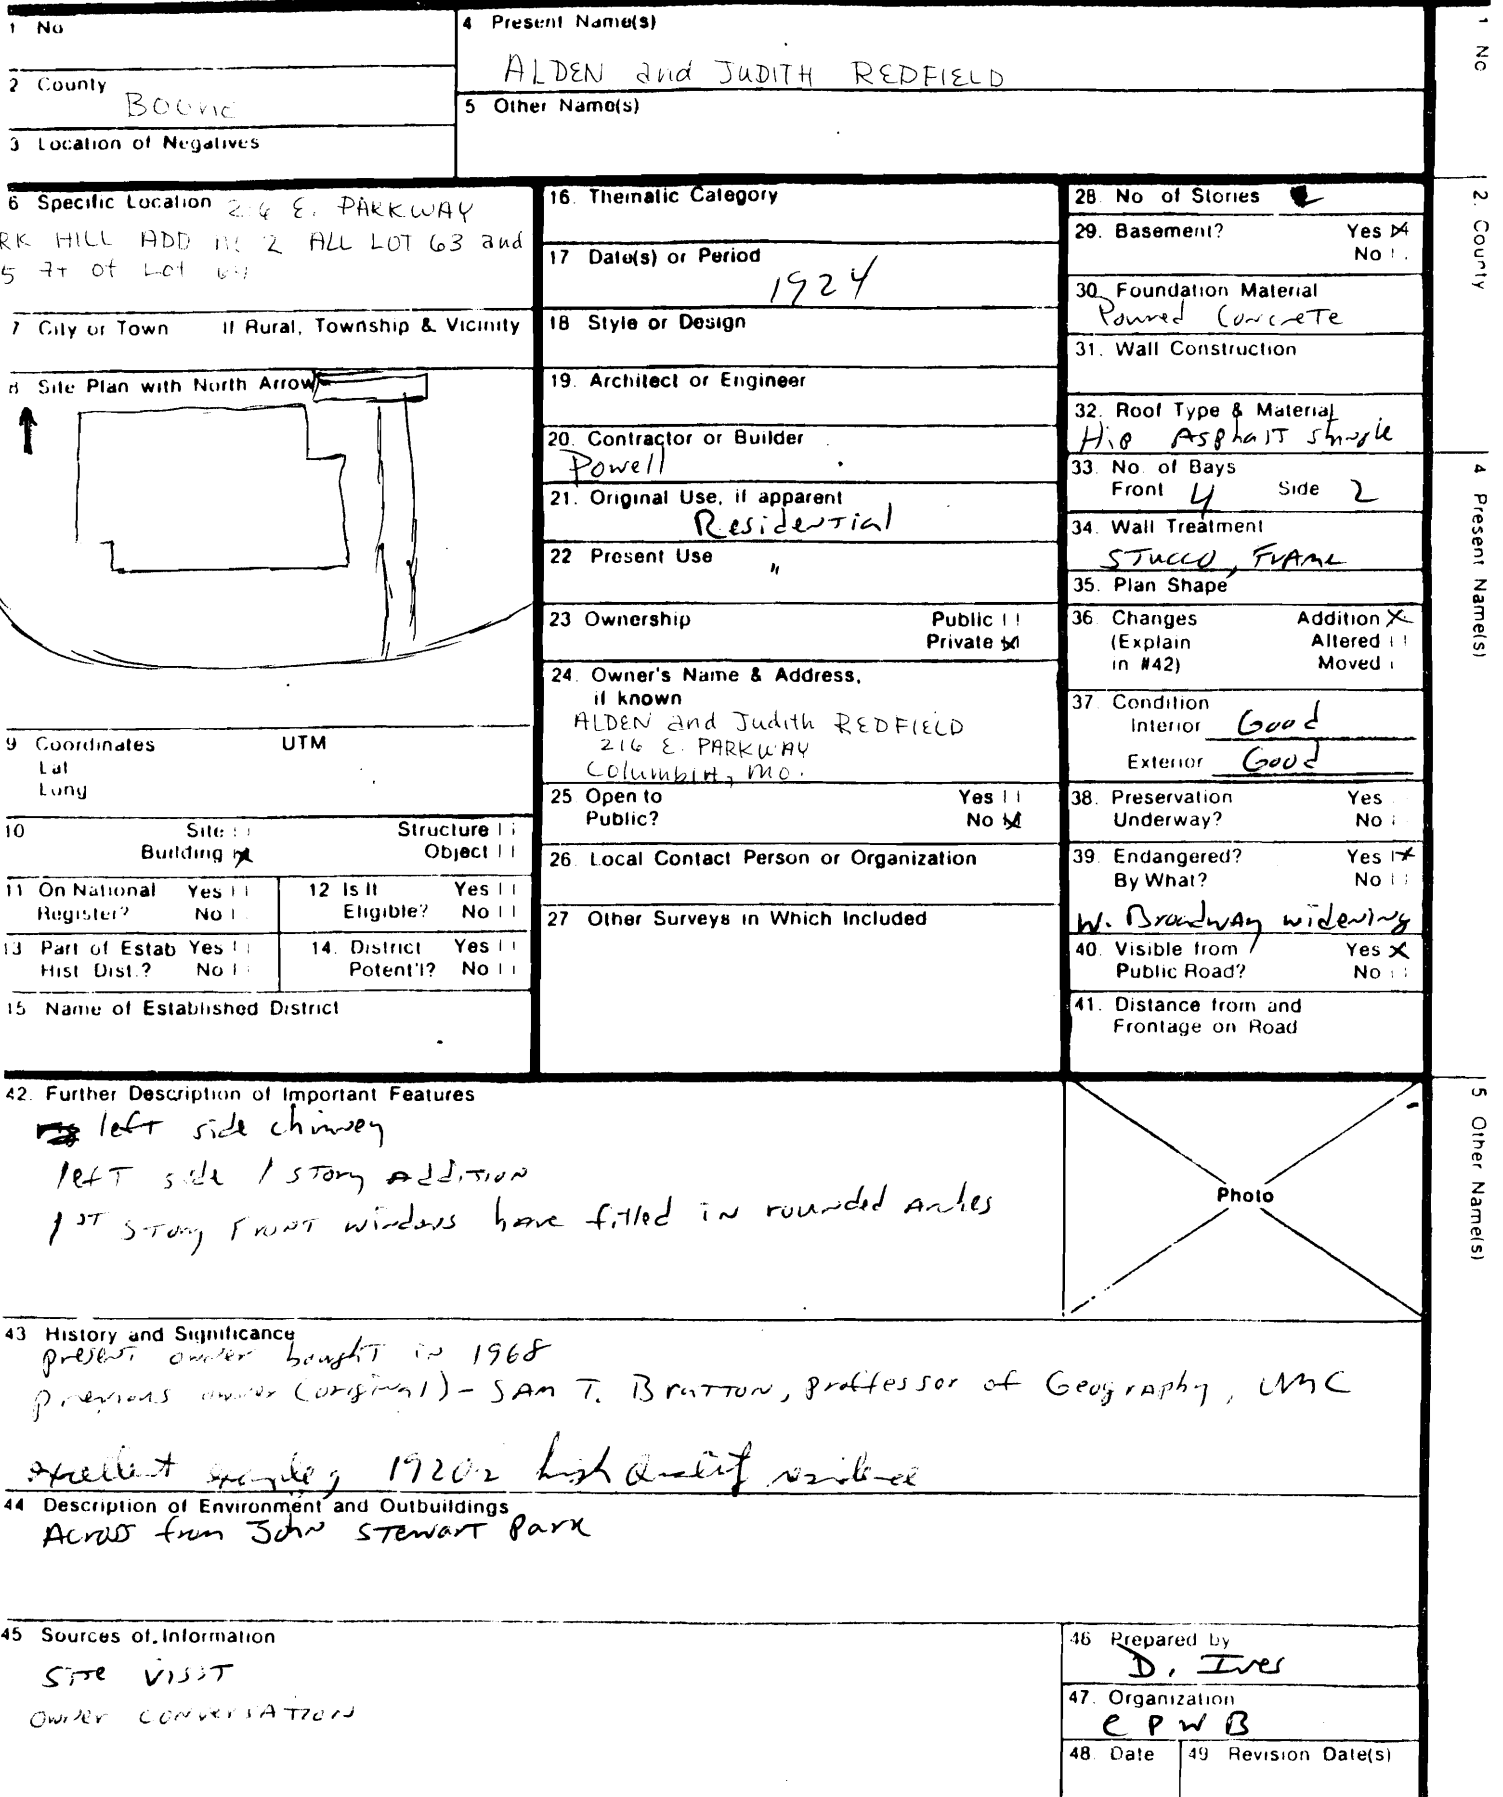 1 No
4 Present Name(s)
ALDEN and JUDITH REDFIELD
2 County
Boone
5 Other Name(s)
3 Location of Negatives
6 Specific Location 216 E. PARKWAY
RK HILL ADD 2 ALL LOT 63 and
5 Ft of Lot
7 City or Town If Rural, Township & Vicinity
8 Site Plan with North Arrow
9 Coordinates UTM
Lat
Long
10 Site Structure
Building Object
11 On National Register? Yes No
12 Is It Eligible? Yes No
13 Part of Estab Hist Dist.? Yes No
14. District Potent'l? Yes No
15 Name of Established District
16. Thematic Category
17 Date(s) or Period
1924
18 Style or Design
19. Architect or Engineer
20. Contractor or Builder
Powell
21. Original Use, if apparent
Residential
22 Present Use
"
23 Ownership Public
Private X
24. Owner's Name & Address,
if known
ALDEN and Judith REDFIELD
216 E. PARKWAY
Columbia, Mo.
25 Open to Yes
Public? No X
26. Local Contact Person or Organization
27 Other Surveys in Which Included
28. No of Stories 2
29. Basement? Yes X
No
30. Foundation Material
Poured Concrete
31. Wall Construction
32. Roof Type & Material
Hip Asphalt shingle
33. No. of Bays
Front 4 Side 2
34. Wall Treatment
STUCCO, FRAME
35. Plan Shape
36. Changes Addition X
(Explain Altered
in #42) Moved
37. Condition
Interior Good
Exterior Good
38. Preservation Yes
Underway? No
39. Endangered? Yes X
By What? No
W. Broadway widening
40. Visible from Yes X
Public Road? No
41. Distance from and
Frontage on Road
42. Further Description of Important Features
left side chimney
left side 1 story addition
1ST story FRONT windows have filled in rounded arches
Photo
43 History and Significance
present owner bought in 1968
previous owner (original) - SAM T. BRATTON, proffessor of Geography, UMC
excellent example of 1920s high quality residence
44 Description of Environment and Outbuildings
Across from John Stewart Park
45 Sources of Information
SITE VISIT
OWNER CONVERSATION
46 Prepared by
D. Ives
47. Organization
C P W B
48. Date 49 Revision Date(s)
1 No
2. County
4 Present Name(s)
5 Other Name(s)